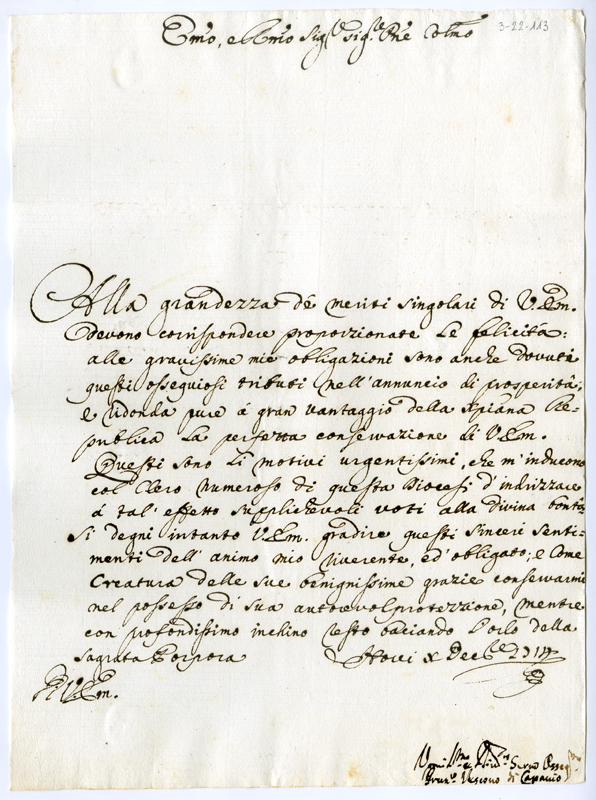 3-22-113
Emo, e Rmo Sigr. sigr. Pne Colmo
Alla grandezza de meriti singolari di V. Em.
devono corrispondere proporzionate le felicità:
alle gravissime mie obligazioni sono anche dovuti
questi ossequiosi tributi nell'annuncio di prosperità,
e ridonda pure à gran vantaggio della Xpiana Re-
publica la perfetta conservazione di V. Em.
Questi sono li motivi urgentissimi, che m'inducono
col Clero numeroso di questa Diocesi d'indrizzare
à tal'effetto supplichevoli voti alla Divina bontà,
si degni intanto V. Em. gradire questi sinceri senti-
menti dell'animo mio riverente, ed'obligato; e come
Creatura delle sue benignissime grazie conservarmi
nel possesso di sua autorevol protezzione, mentre
con profondissimo inchino resto baciando l'orlo della
sagrata Porpora Novi x Decbre
Di V. Em.
Servo Osseq
Vescovo di Capaccio